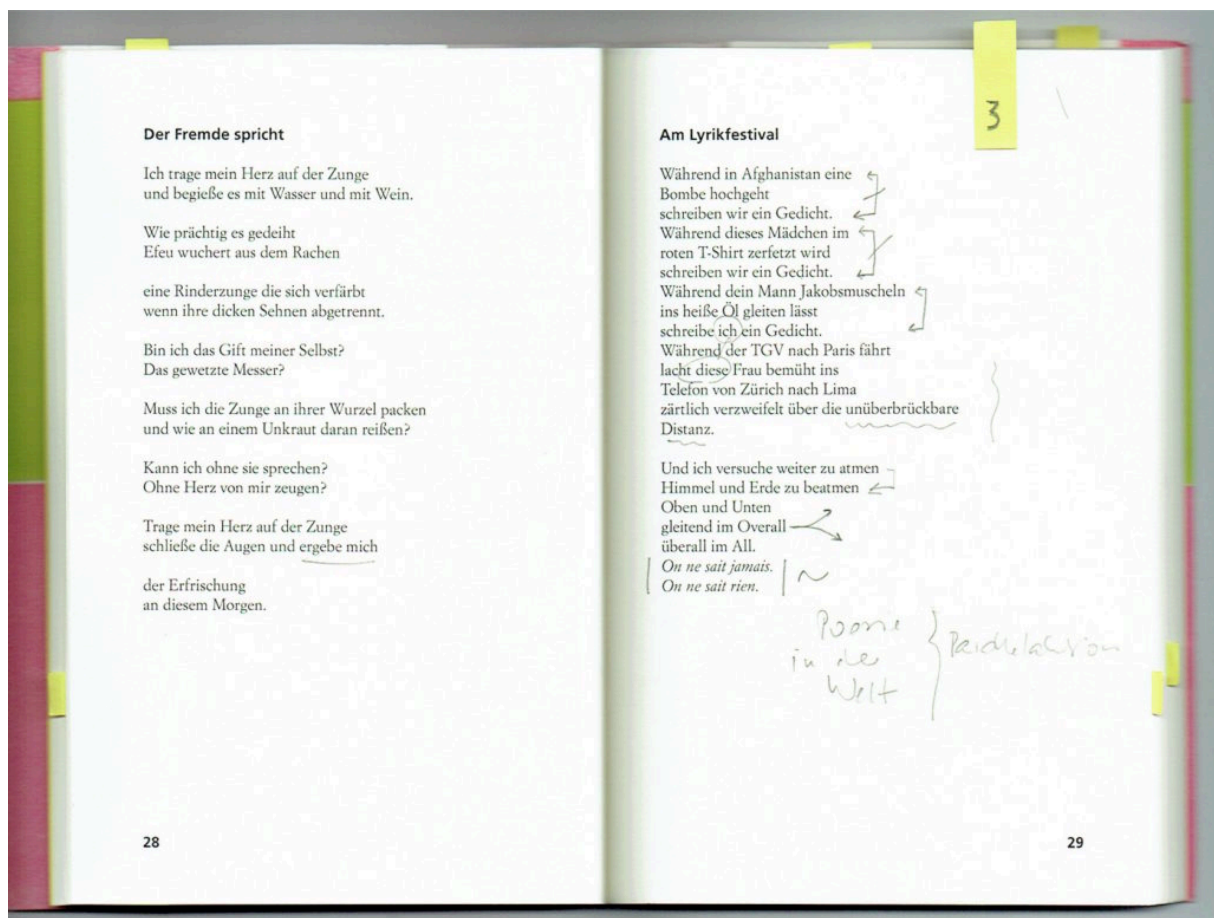 Der Fremde spricht
Ich trage mein Herz auf der Zunge
und begieße es mit Wasser und mit Wein.
Wie prächtig es gedeiht
Efeu wuchert aus dem Rachen
eine Rinderzunge die sich verfärbt
wenn ihre dicken Sehnen abgetrennt.
Bin ich das Gift meiner Selbst?
Das gewetzte Messer?
Muss ich die Zunge an ihrer Wurzel packen
und wie an einem Unkraut daran reißen?
Kann ich ohne sie sprechen?
Ohne Herz von mir zeugen?
Trage mein Herz auf der Zunge
schließe die Augen und ergebe mich
der Erfrischung
an diesem Morgen.
28
3
Am Lyrikfestival
Während in Afghanistan eine
Bombe hochgeht
schreiben wir ein Gedicht.
Während dieses Mädchen im
roten T-Shirt zerfetzt wird
schreiben wir ein Gedicht.
Während dein Mann Jakobsmuscheln
ins heiße Öl gleiten lässt
schreibe ich ein Gedicht.
Während der TGV nach Paris fährt
lacht diese Frau bemüht ins
Telefon von Zürich nach Lima
zärtlich verzweifelt über die unüberbrückbare
Distanz.
Und ich versuche weiter zu atmen
Himmel und Erde zu beatmen
Oben und Unten
gleitend im Overall
überall im All.
On ne sait jamais.
On ne sait rien.
in der
Welt
29